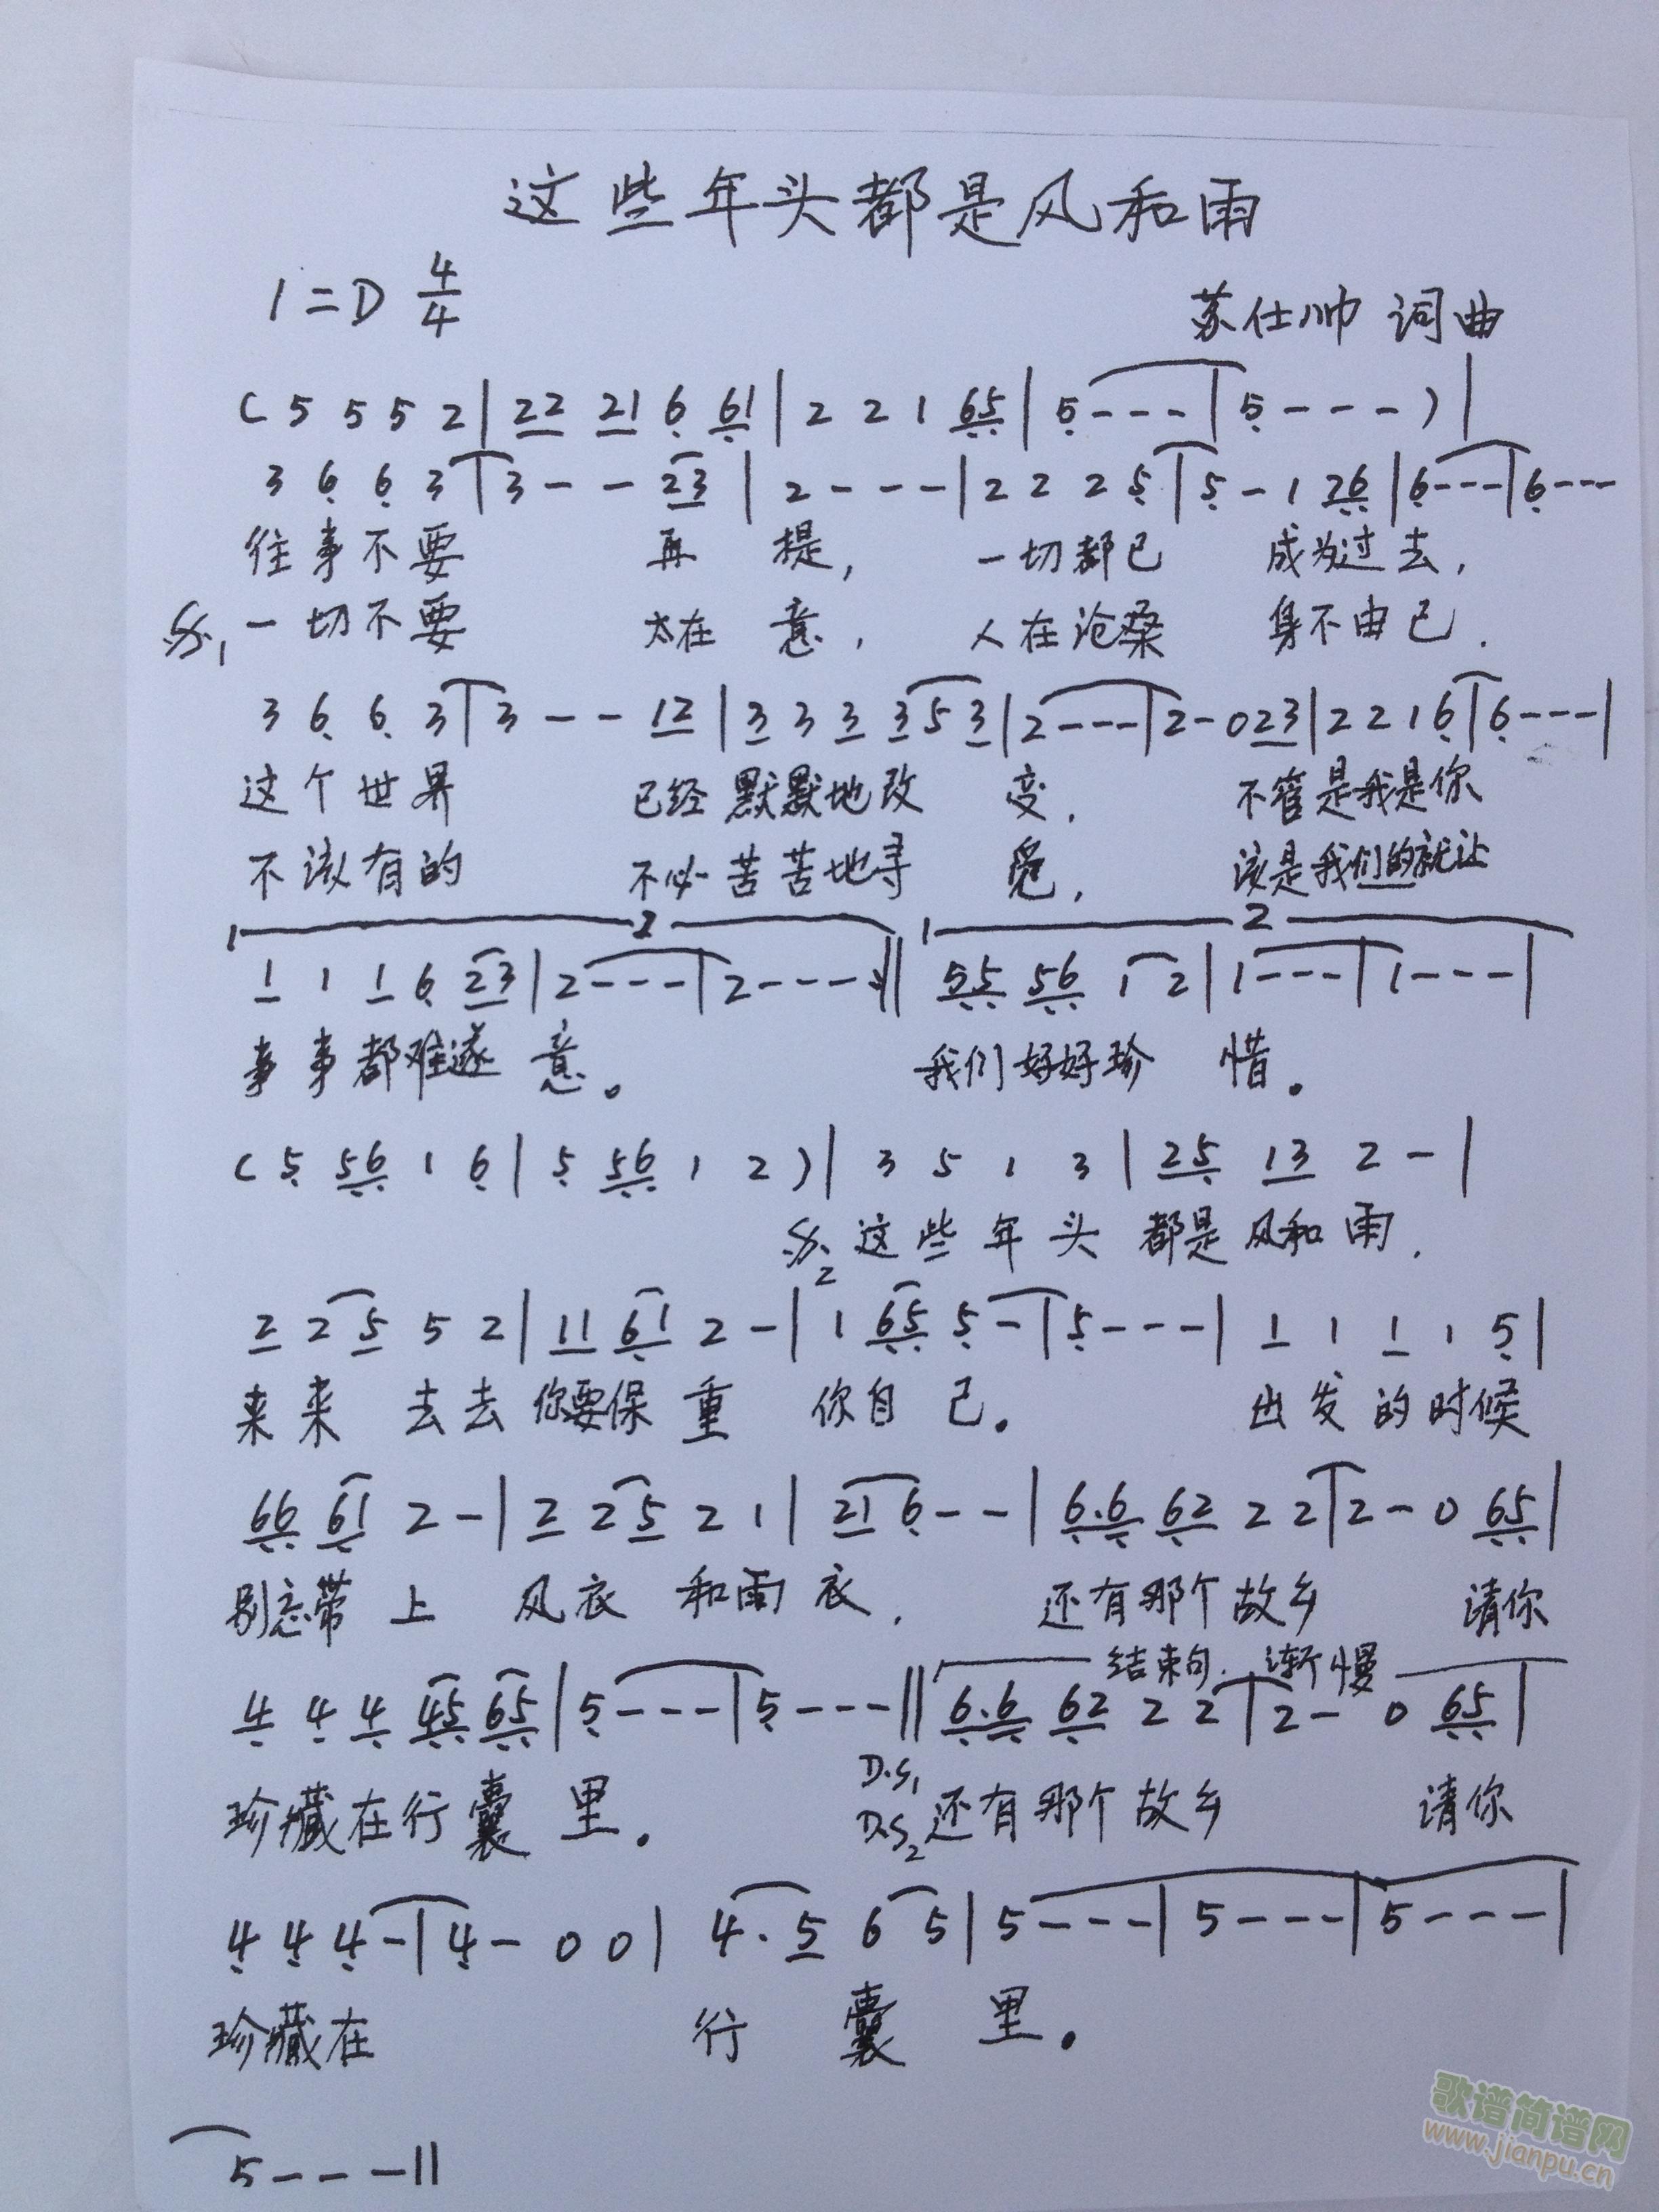 这些年头都是风和雨
1=D 4/4
苏仕帅 词曲
( 5 5 5 2 | 22 21 6 61 | 2 2 1 65 | 5 - - - | 5 - - - ) |
3 6 6 3 | 3 - - 23 | 2 - - - | 2 2 2 5 | 5 - 1 26 | 6 - - - | 6 - - -
往事不要 再提， 一切都已 成为过去，
𝄋1 一切不要 太在意， 人在沧桑 身不由己.
3 6 6 3 | 3 - - 12 | 3 3 3 3 5 3 | 2 - - - | 2 - 0 23 | 2 2 1 6 | 6 - - - |
这个世界 已经默默地改变， 不管是我是你
不该有的 不必苦苦地寻觅， 该是我们的就让
1 2 1 2
1 1 1 6 23 | 2 - - - | 2 - - - :|| 55 56 1 2 | 1 - - - | 1 - - - |
事事都难遂意。 我们好好珍惜。
( 5 56 1 6 | 5 56 1 2 ) | 3 5 1 3 | 25 13 2 - |
𝄋2 这些年头 都是风和雨.
2 2 5 5 2 | 11 61 2 - | 1 65 5 - | 5 - - - | 1 1 1 1 5 |
来来去去你要保重 你自己。 出发的时候
66 61 2 - | 2 2 5 2 1 | 21 6 - - | 6.6 62 2 2 | 2 - 0 65 |
别忘带上 风衣和雨衣. 还有那个故乡 请你
结束句. 渐慢
4 4 4 45 65 | 5 - - - | 5 - - - || 6.6 62 2 2 | 2 - 0 65 |
D.S1
珍藏在行囊里。 D.S2 还有那个故乡 请你
4 4 4 - | 4 - 0 0 | 4. 5 6 5 | 5 - - - | 5 - - - | 5 - - - |
珍藏在 行囊里。
5 - - - ||
歌谱简谱网
www.jianpu.cn